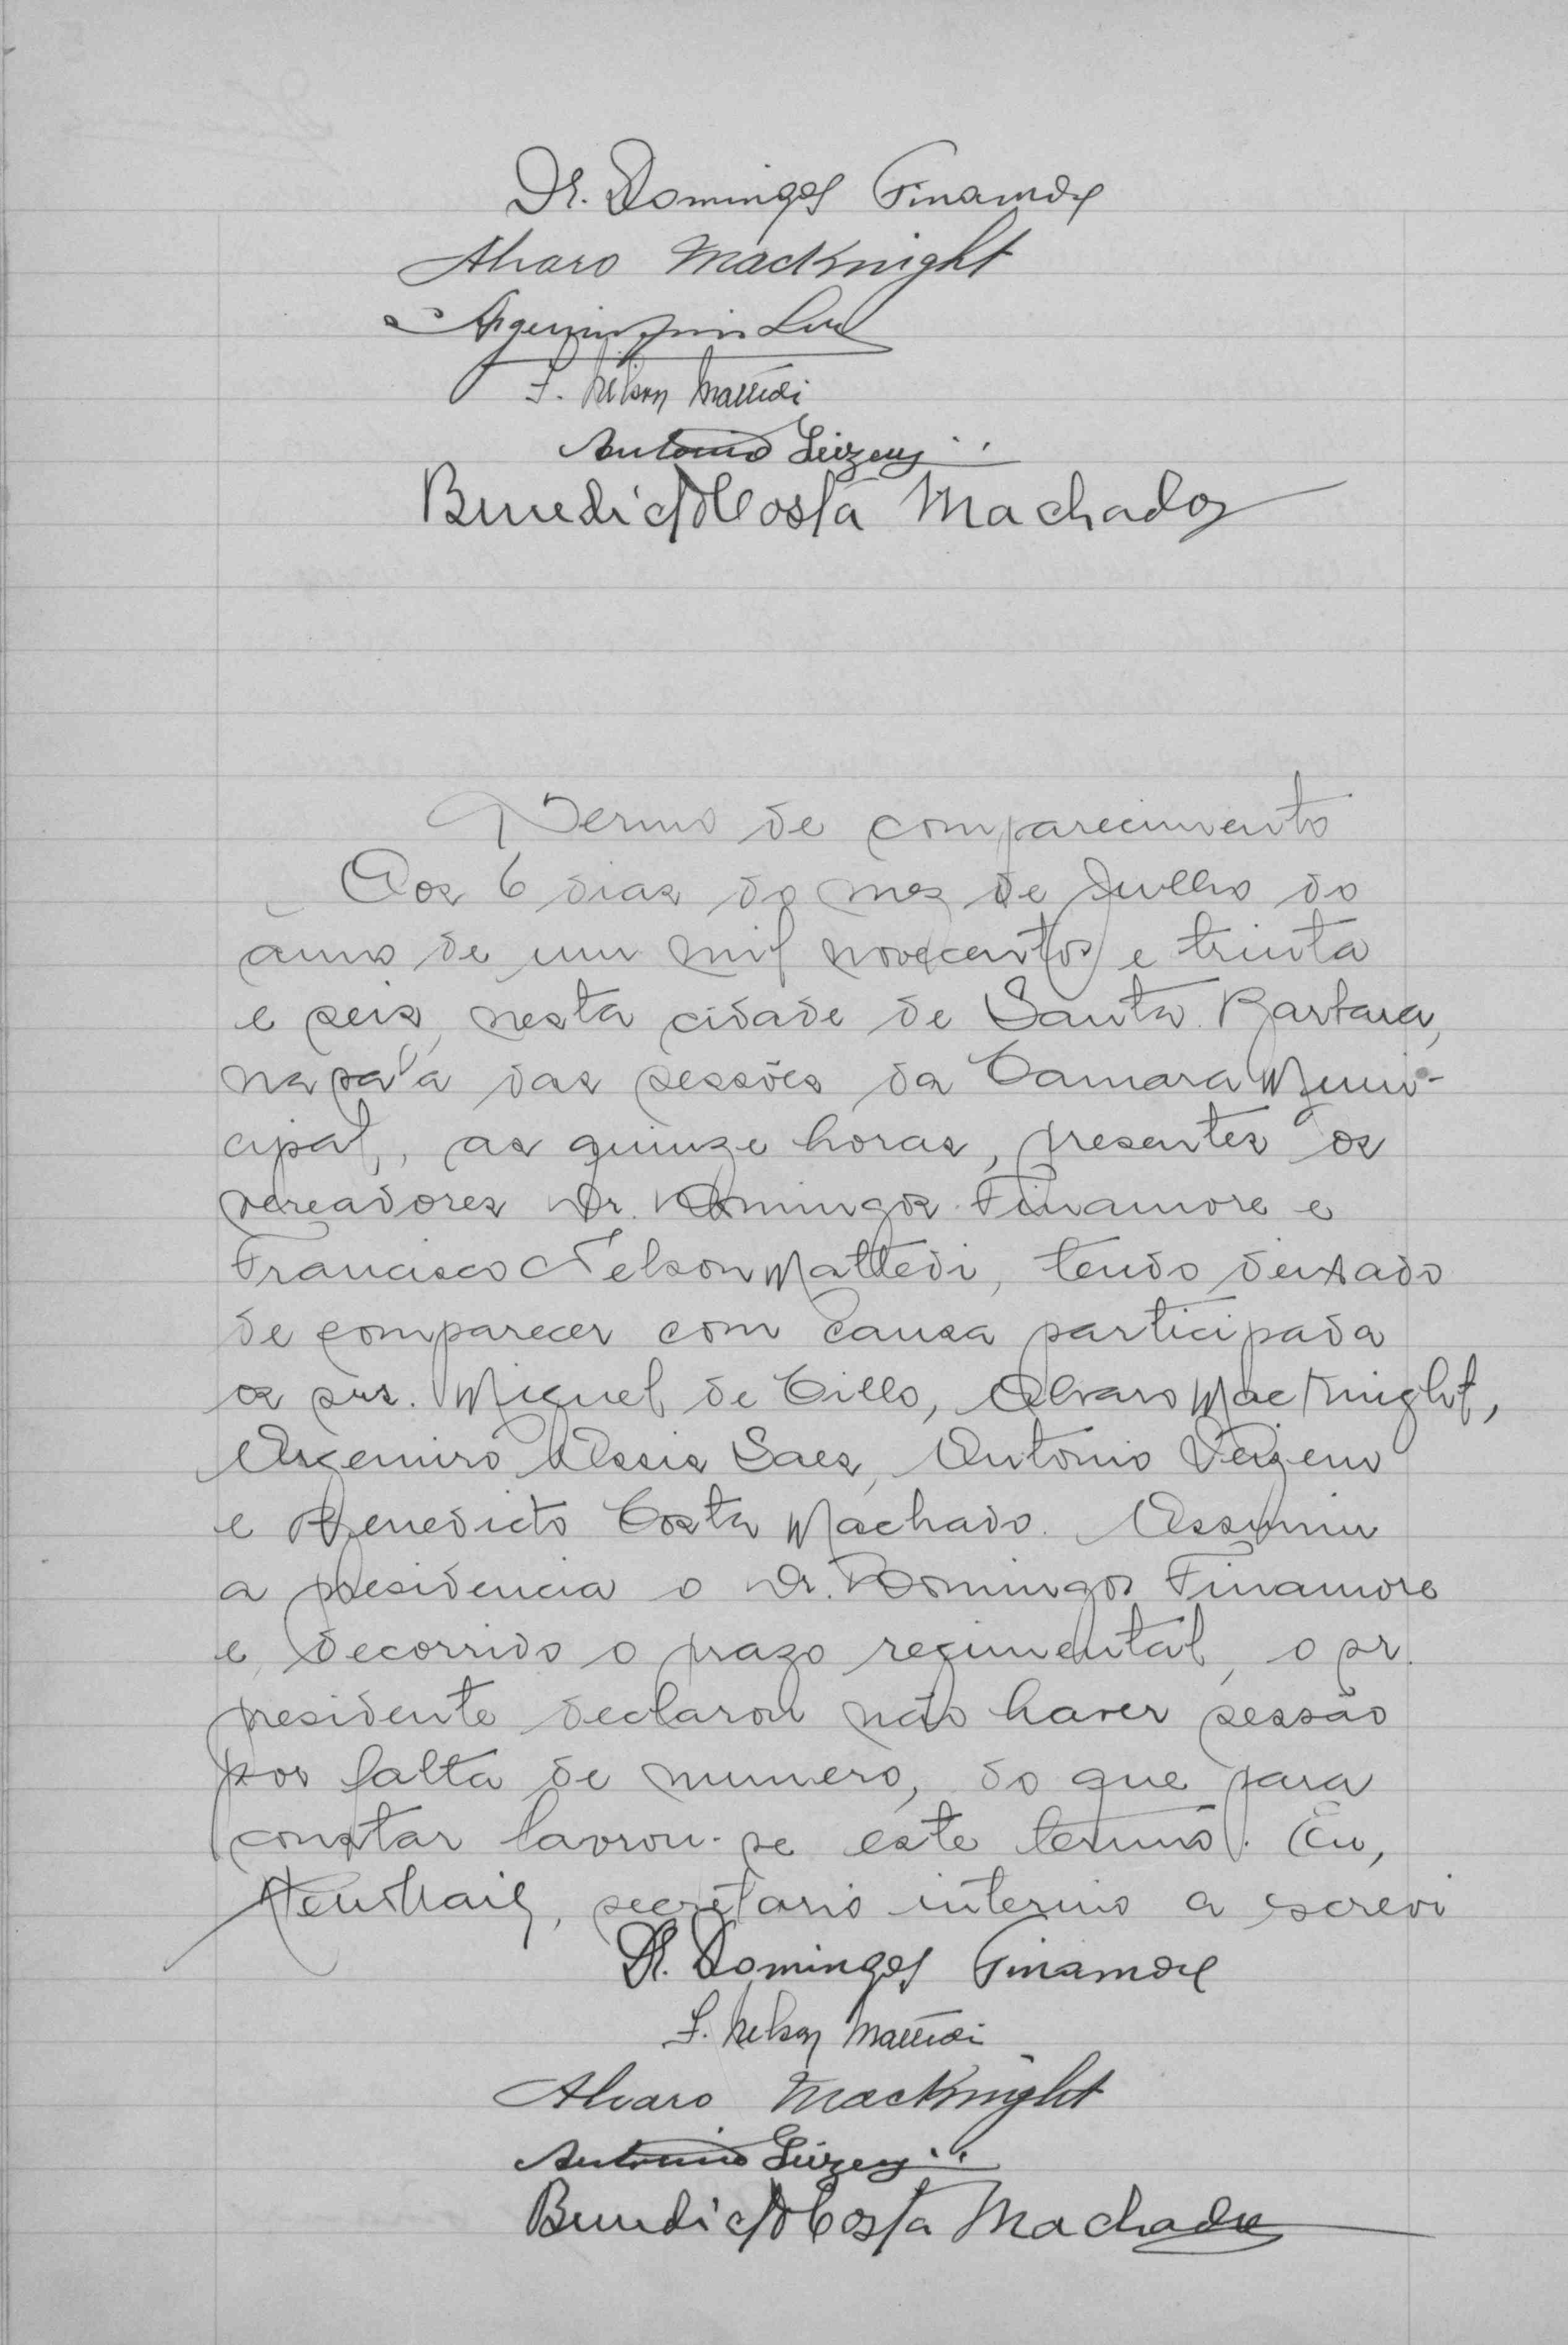 Dr. Domingos Finamore
Alvaro MacKnight
F. Nelson Mattedi
Antonio
Benedicto Costa Machado
Termo de comparecimento
Aos 6 dias do mez de Julho do
anno de um mil novecentos e trinta
e seis, nesta cidade de Santa Barbara,
na sala das sessões da Camara Muni-
cipal, as quinze horas, presentes os
vereadores Dr. Domingos Finamore e
Francisco Nelson Mattedi, tendo deixado
de comparecer com causa participada
os srs. Miguel de Cillo, Alvaro MacKnight,
Argemiro Assis Saes, Antonio
e Benedicto Costa Machado. Assumiu
a presidencia o Dr. Domingos Finamore
e, decorrido o prazo regimental, o sr.
presidente declarou não haver sessão
por falta de numero, do que para
constar lavrou-se este termo. Eu,
secretario interino a escrevi
Dr. Domingos Finamore
F. Nelson Mattedi
Alvaro MacKnight
Antonio
Benedicto Costa Machado